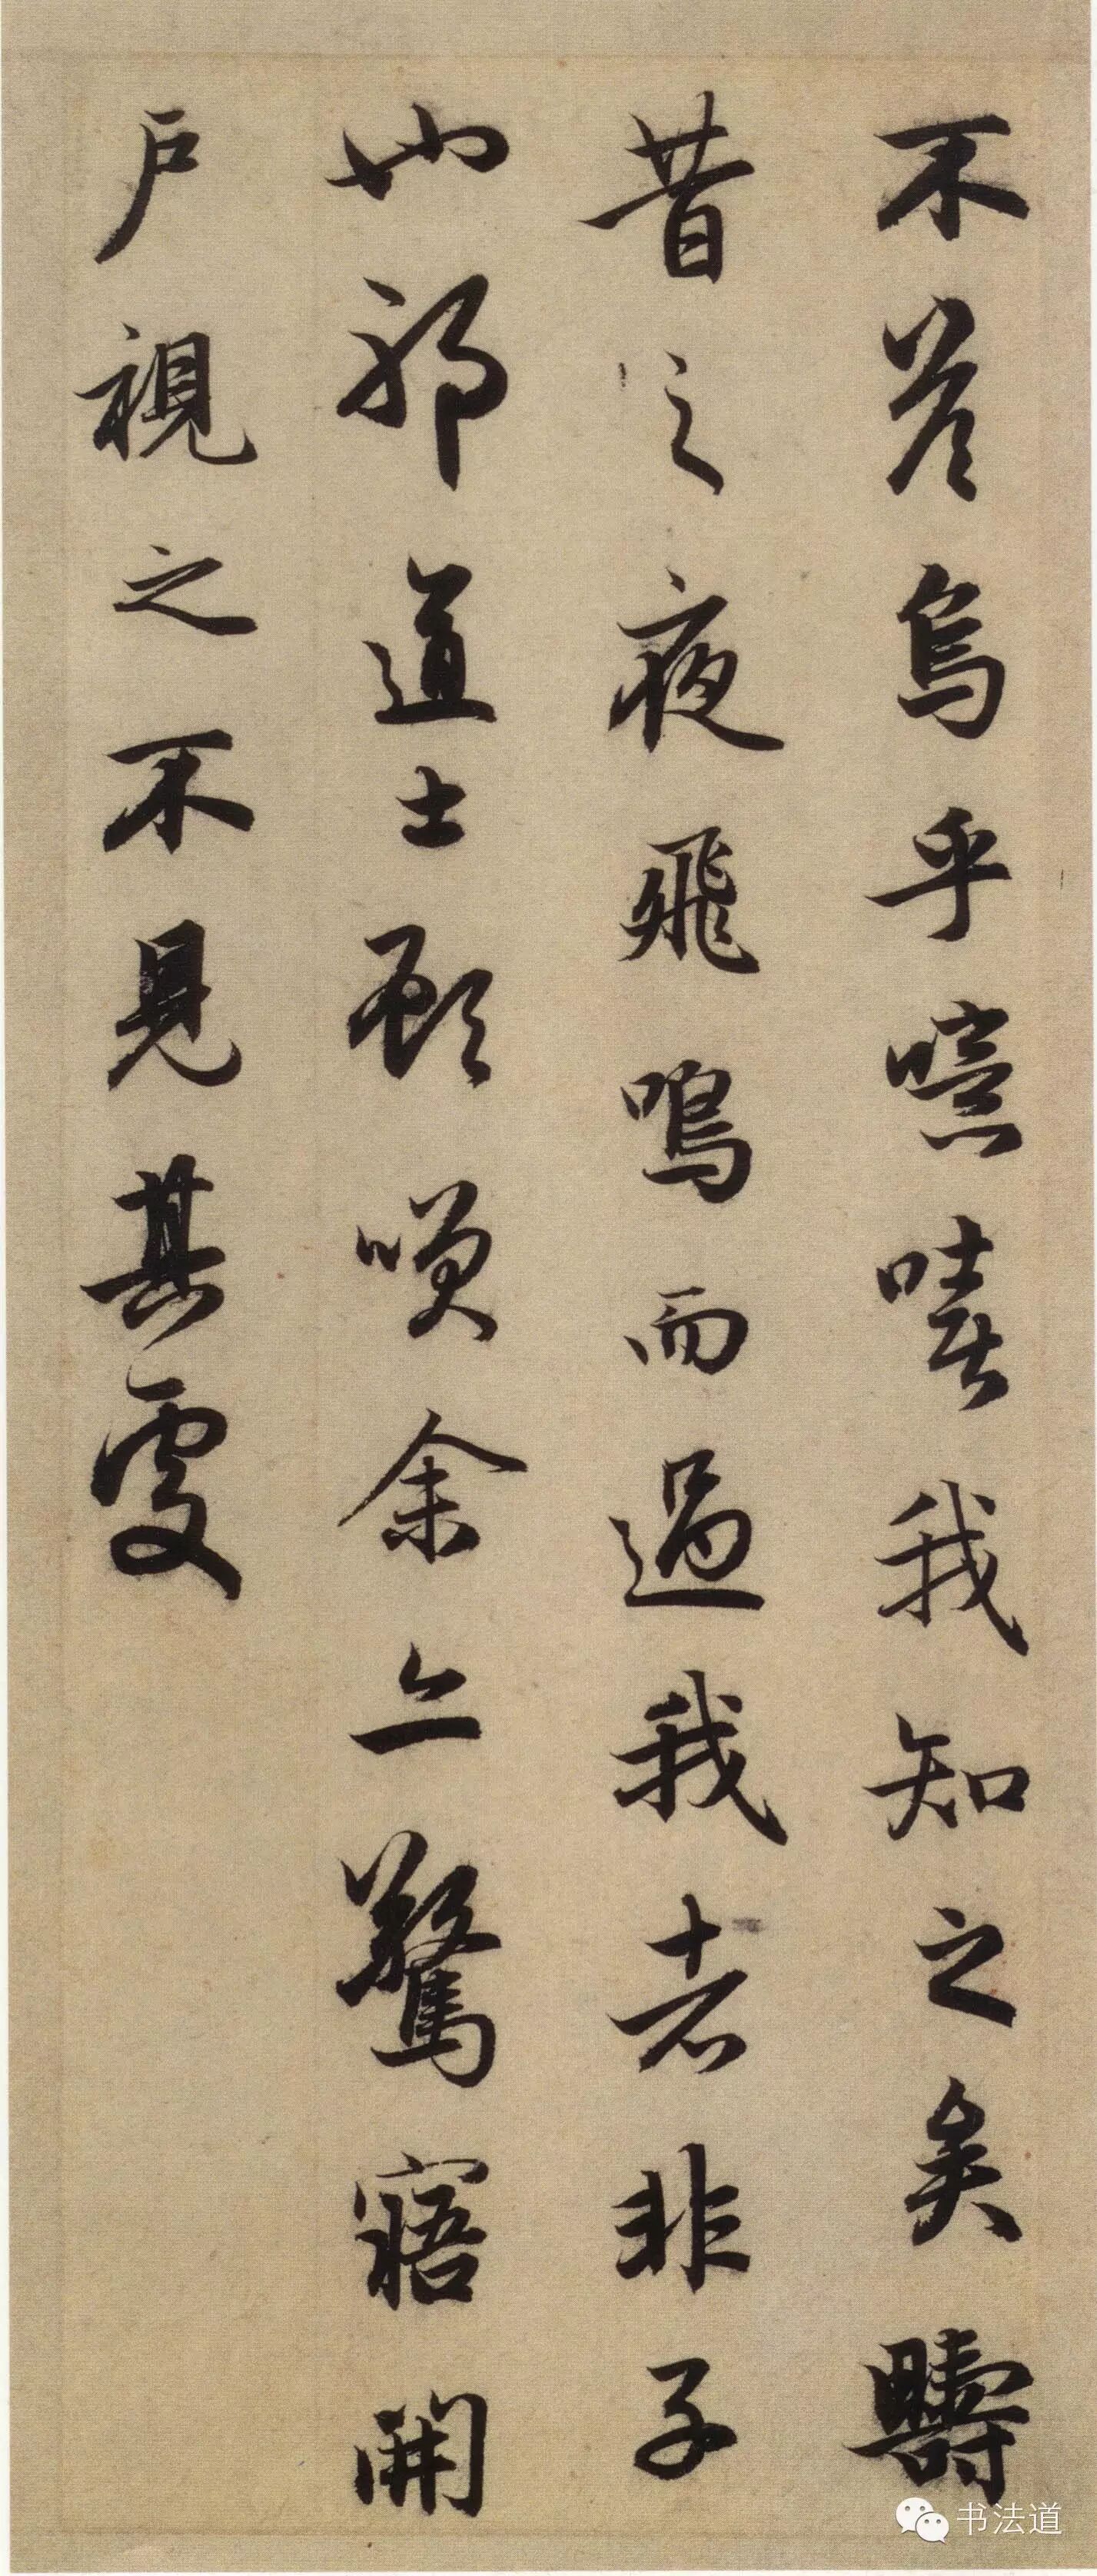 不答烏乎噫嘻我知之矣疇
昔之夜飛鳴而過我者非子
也邪道士顧咲余亦驚寤開
户視之不見其處
书法道